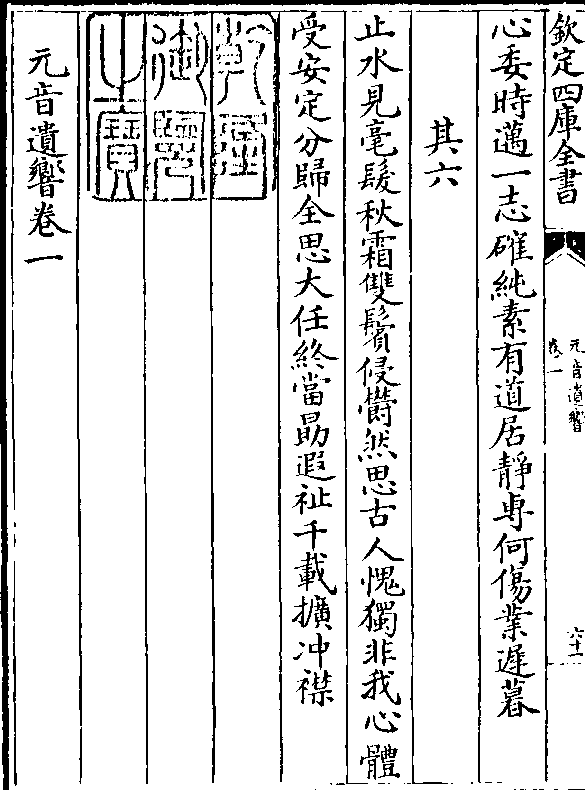 欽定四庫全書
元音遺響
卷一
六十一
心委時邁一志確純素有道居靜專何傷業遲暮
其六
止水見毫髮秋霜雙鬢侵欝然思古人愧獨非我心體
受安定分歸全思大任終當勗遐祉千載擴冲襟
乾隆
御覽
之寶
元音遺響卷一